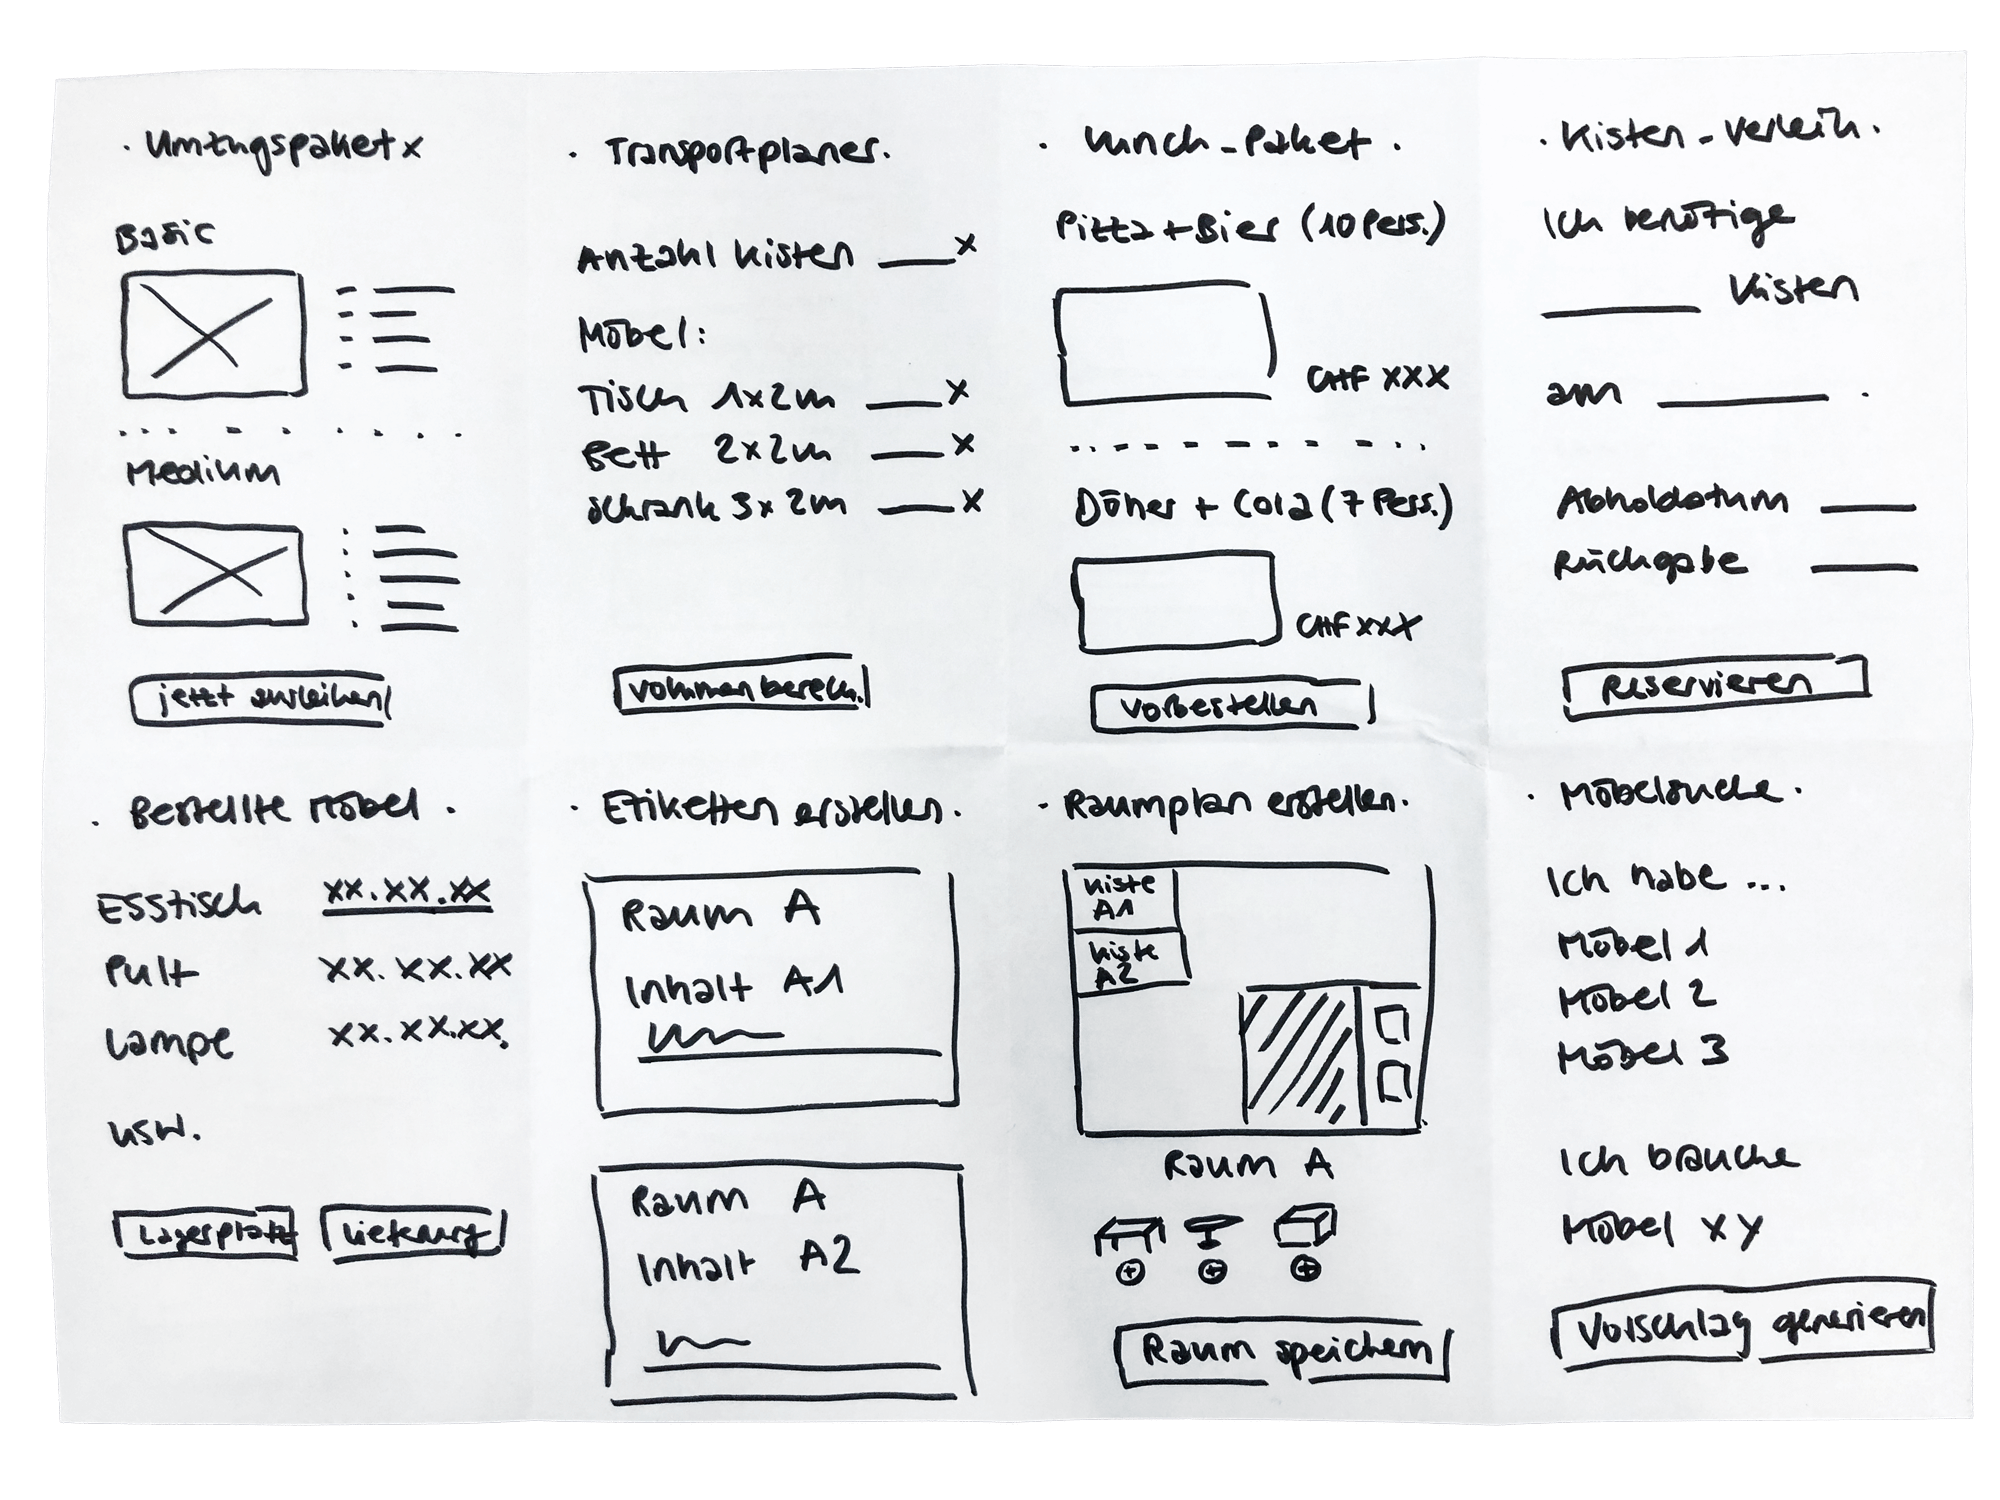 · Umzugspaket x
Basic
Medium
jetzt ausleihen
· Transportplaner.
Anzahl Kisten ___x
Möbel:
Tisch 1x2m ___x
Bett 2x2m ___x
Schrank 3x2m ___x
Volumen berech.
· Lunch-Paket.
Pizza + Bier (10 Pers.)
CHF XXX
Döner + Cola (7 Pers.)
CHF XXX
Vorbestellen
· Kisten-Verleih.
Ich benötige
___ Kisten
am ___.
Abholdatum ___
Rückgabe ___
Reservieren
· Bestellte Möbel.
Esstisch xx.xx.xx
Pult xx.xx.xx
Lampe xx.xx.xx.
usw.
Lagerplatz
Lieferung
· Etiketten erstellen.
Raum A
Inhalt A1
Raum A
Inhalt A2
· Raumplan erstellen.
Kiste
A1
Kiste
A2
Raum A
Raum speichern
· Möbelsuche.
Ich habe ...
Möbel 1
Möbel 2
Möbel 3
Ich brauche
Möbel xy
Vorschlag generieren